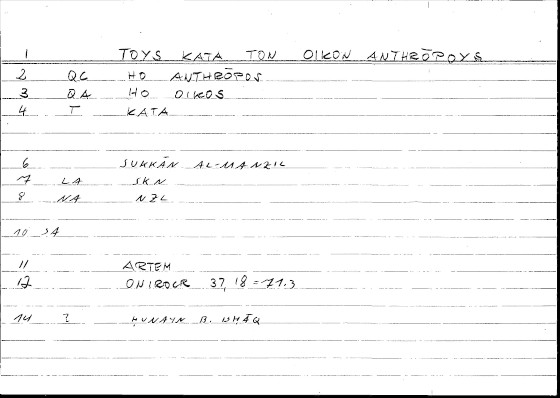 1 TOYS KATA TON OIKON ANTHRŌPOYS
2 QC HO ANTHRŌPOS
3 QA HO OIKOS
4 T KATA
6 SUKKĀN AL-MANZIL
7 LA SKN
8 NA NZL
10 SA
11 ARTEM
12 ONIROCR 37, 18 = 71.3
14 Z ḤUNAYN B. ISḤĀQ